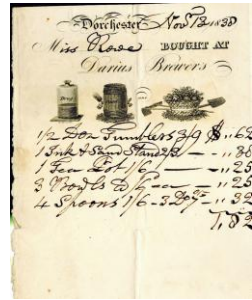 Dorchester Nov 13 1838
Miss Rowe BOUGHT AT
Darius Brewers
1/2 Doz Tumblers 3/9 $ .. 62
1 Ink & Sand Stand 2/3 — .. 38
1 Tea Pot 1/6 — .. 25
3 Bowls 6 — .. 25
4 Spoons 1/6 - 3 — .. 32
1,82